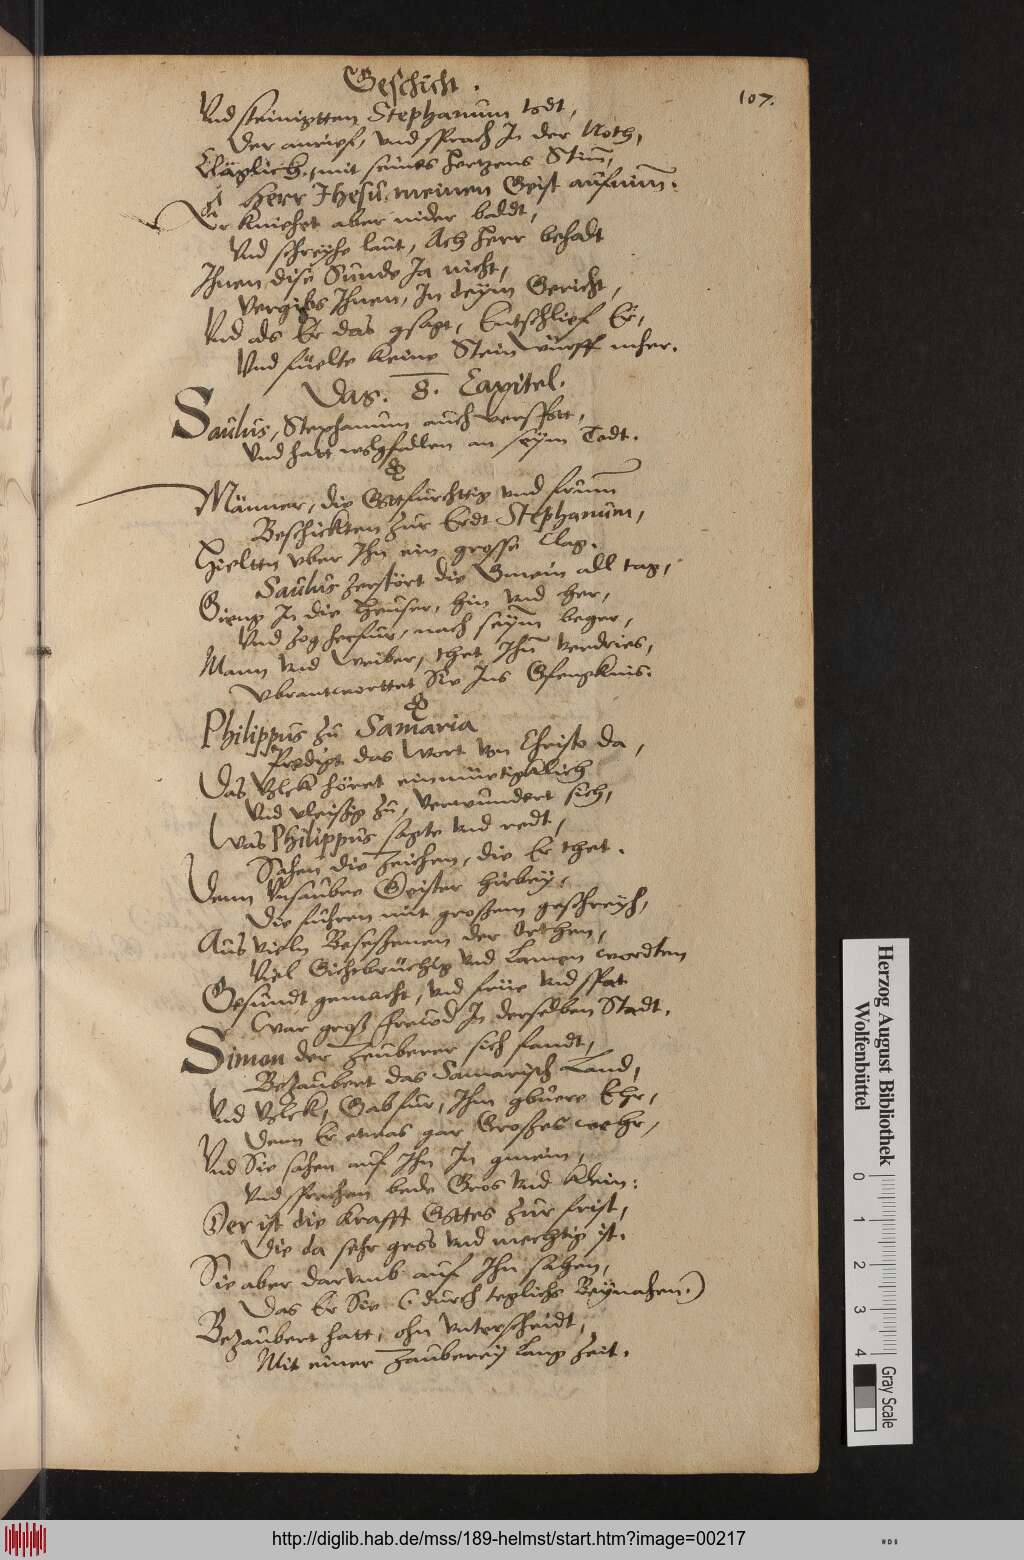 Geschicht.
107.
Vnd steinigtten Stephanum todt,
Der anrieff, vnd sprach In der Noth,
Cläglich, mit seines Hertzens Stim,
O Herr Jhesu, meinen Geist aufnim:
Er kniehet aber nider baldt,
Vnd schreyhe laut, Ach Herr behadt
Ihnen dise Sünde Ja nicht,
Vergibs Ihnen, In deym Gericht,
Vnd als Er das gsagt, Entschlieff Er,
Vnd füelte keine Stein würff mher.
Das. 8. Capitel.
Saulus, Stephanum auch verspott,
Vnd hatt wolgfallen an seym Todt.
Männer, die Gottfürchttig vnd frumm
Beschickten zur Erdt Stephanum,
Hieltten vber Ihn ein grosse Clag.
Saulus zerstört die Gmein all tag,
Gieng In die Heuser, hin vnd her,
Vnd zog herfür, nach seym beger,
Mann vnd Weiber, thet Ihn verdries,
Vbrantworttet Sie Ins Gfengknis.
Philippus zu Samaria
Predigt das Wort von Christo da,
Das Volck höret einmüetigklich
Vnd vleissig zu, verwundert sich,
Was Philippus sagte vnd redt,
Sahen die Zeichen, die Er thet.
Denn Vnsaubere Geister hirbey,
Die fuhren mit grossem geschrey,
Aus vieln Besessenen der Orthen,
Viel Gichtbrüchig vnd Lamen wordten
Gesundt gemacht, vnd früe vnd spat
War gross freüd In derselben Stadt.
Simon der Zauberer sich fandt,
Bezaubert das Samarisch Land,
Vnd Volck, Gab für, Ihm gbüere Ehr,
Denn Er etwas gar Grosses wehr,
Vnd Sie sahen auf Ihn In gmein,
Vnd sprachen bede Gros vnd Klein:
Der ist die Krafft Gottes zur frist,
Die da sehr gros vnd mechtig ist.
Sie aber darumb auf Ihn sahen,
Das Er Sie (durch teglichs Beynahen.)
Bezaubert hatt, ohn vnterscheidt,
Mit einer Zauberey lang Zeit.
Herzog August Bibliothek
Wolfenbüttel
0 1 2 3 4
Gray Scale
http://diglib.hab.de/mss/189-helmst/start.htm?image=00217